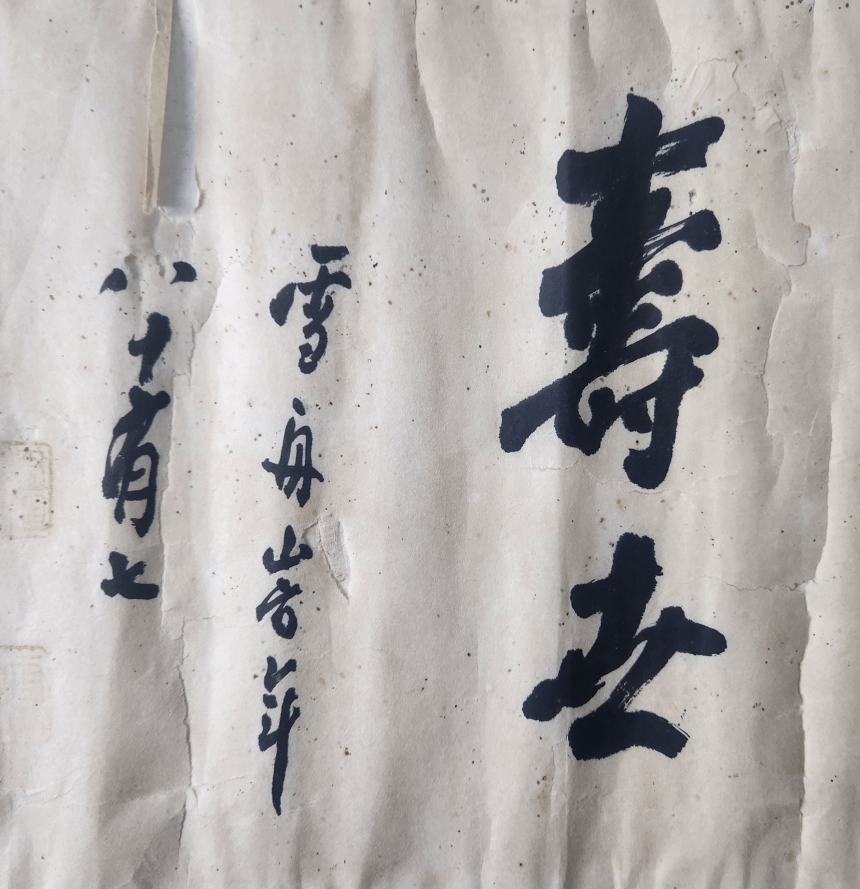 壽世
雪舟山岩年
八十有七